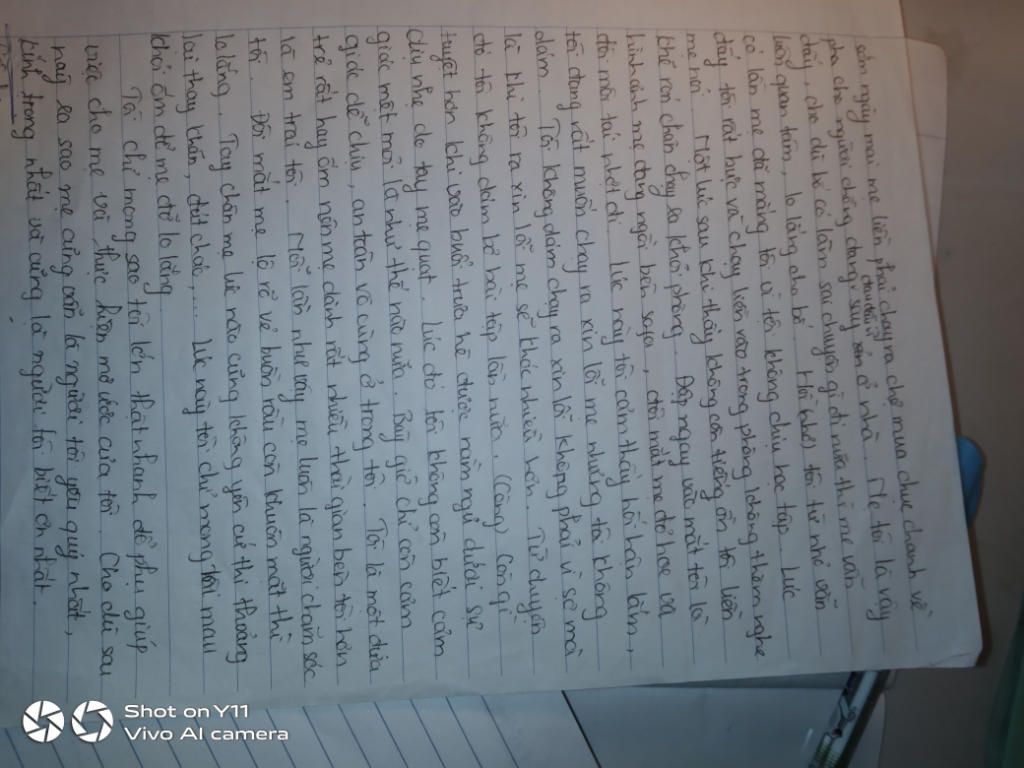 sớm ngày mai mẹ liền phải chạy ra chợ mua chục chanh về
pha cho người chồng đang say xỉn ở nhà. Mẹ tôi là vậy
đấy, cho dù bố có lầm sai chuyện gì đi nữa thì mẹ vẫn
chuẩn ?
luôn quan tâm, lo lắng cho bố. Hồi nhỏ, tôi từ nhỏ vẫn
có lần mẹ đã mắng tôi vì tôi không chịu học tập. Lúc
đấy tôi rất bực và chạy liền vào trong phòng không thèm nghe
mẹ nói. Một lúc sau khi thấy không còn tiếng ồn tôi liền
khẽ rón chân chạy ra khỏi phòng. Đập ngay vào mắt tôi là
hình ảnh mẹ đang ngồi bên sofa, đôi mắt mẹ đỏ hoe và
đôi môi tái nhợt đi. Lúc này tôi cảm thấy hối hận lắm,
tôi đang rất muốn chạy ra xin lỗi mẹ nhưng tôi không
dám. Tôi không dám chạy ra xin lỗi không phải vì sợ mà
là khi tôi ra xin lỗi mẹ sẽ khóc nhiều hơn. Từ chuyện
đó tôi không dám bỏ bài tập lần nữa. (Công) Còn gì
tuyệt hơn khi vào buổi trưa hè được nằm ngủ dưới sự
chịu nhẹ do tay mẹ quạt. Lúc đó tôi không còn biết cảm
giác mệt mỏi là như thế nào nữa. Bây giờ chỉ còn cảm
giác dễ chịu, an toàn vô cùng ở trong tôi. Tôi là một đứa
trẻ rất hay ốm nên mẹ dành rất nhiều thời gian bên tôi hơn
là em trai tôi. Mỗi lần như vậy mẹ luôn là người chăm sóc
tôi. Đôi mắt mẹ lộ rõ vẻ buồn rầu còn khuôn mặt thì
lo lắng. Tay chân mẹ lúc nào cũng không yên cứ thi thoảng
lại thay khăn, đút cháo,... Lúc này tôi chỉ mong tôi mau
khỏi ốm để mẹ đỡ lo lắng.
Tôi chỉ mong sao tôi lớn thật nhanh để phụ giúp
việc cho mẹ và thực hiện mơ ước của tôi. Cho dù sau
này ra sao mẹ cũng vẫn là người tôi yêu quý nhất,
kính trọng nhất và cũng là người tôi biết ơn nhất.
Shot on Y11
Vivo AI camera